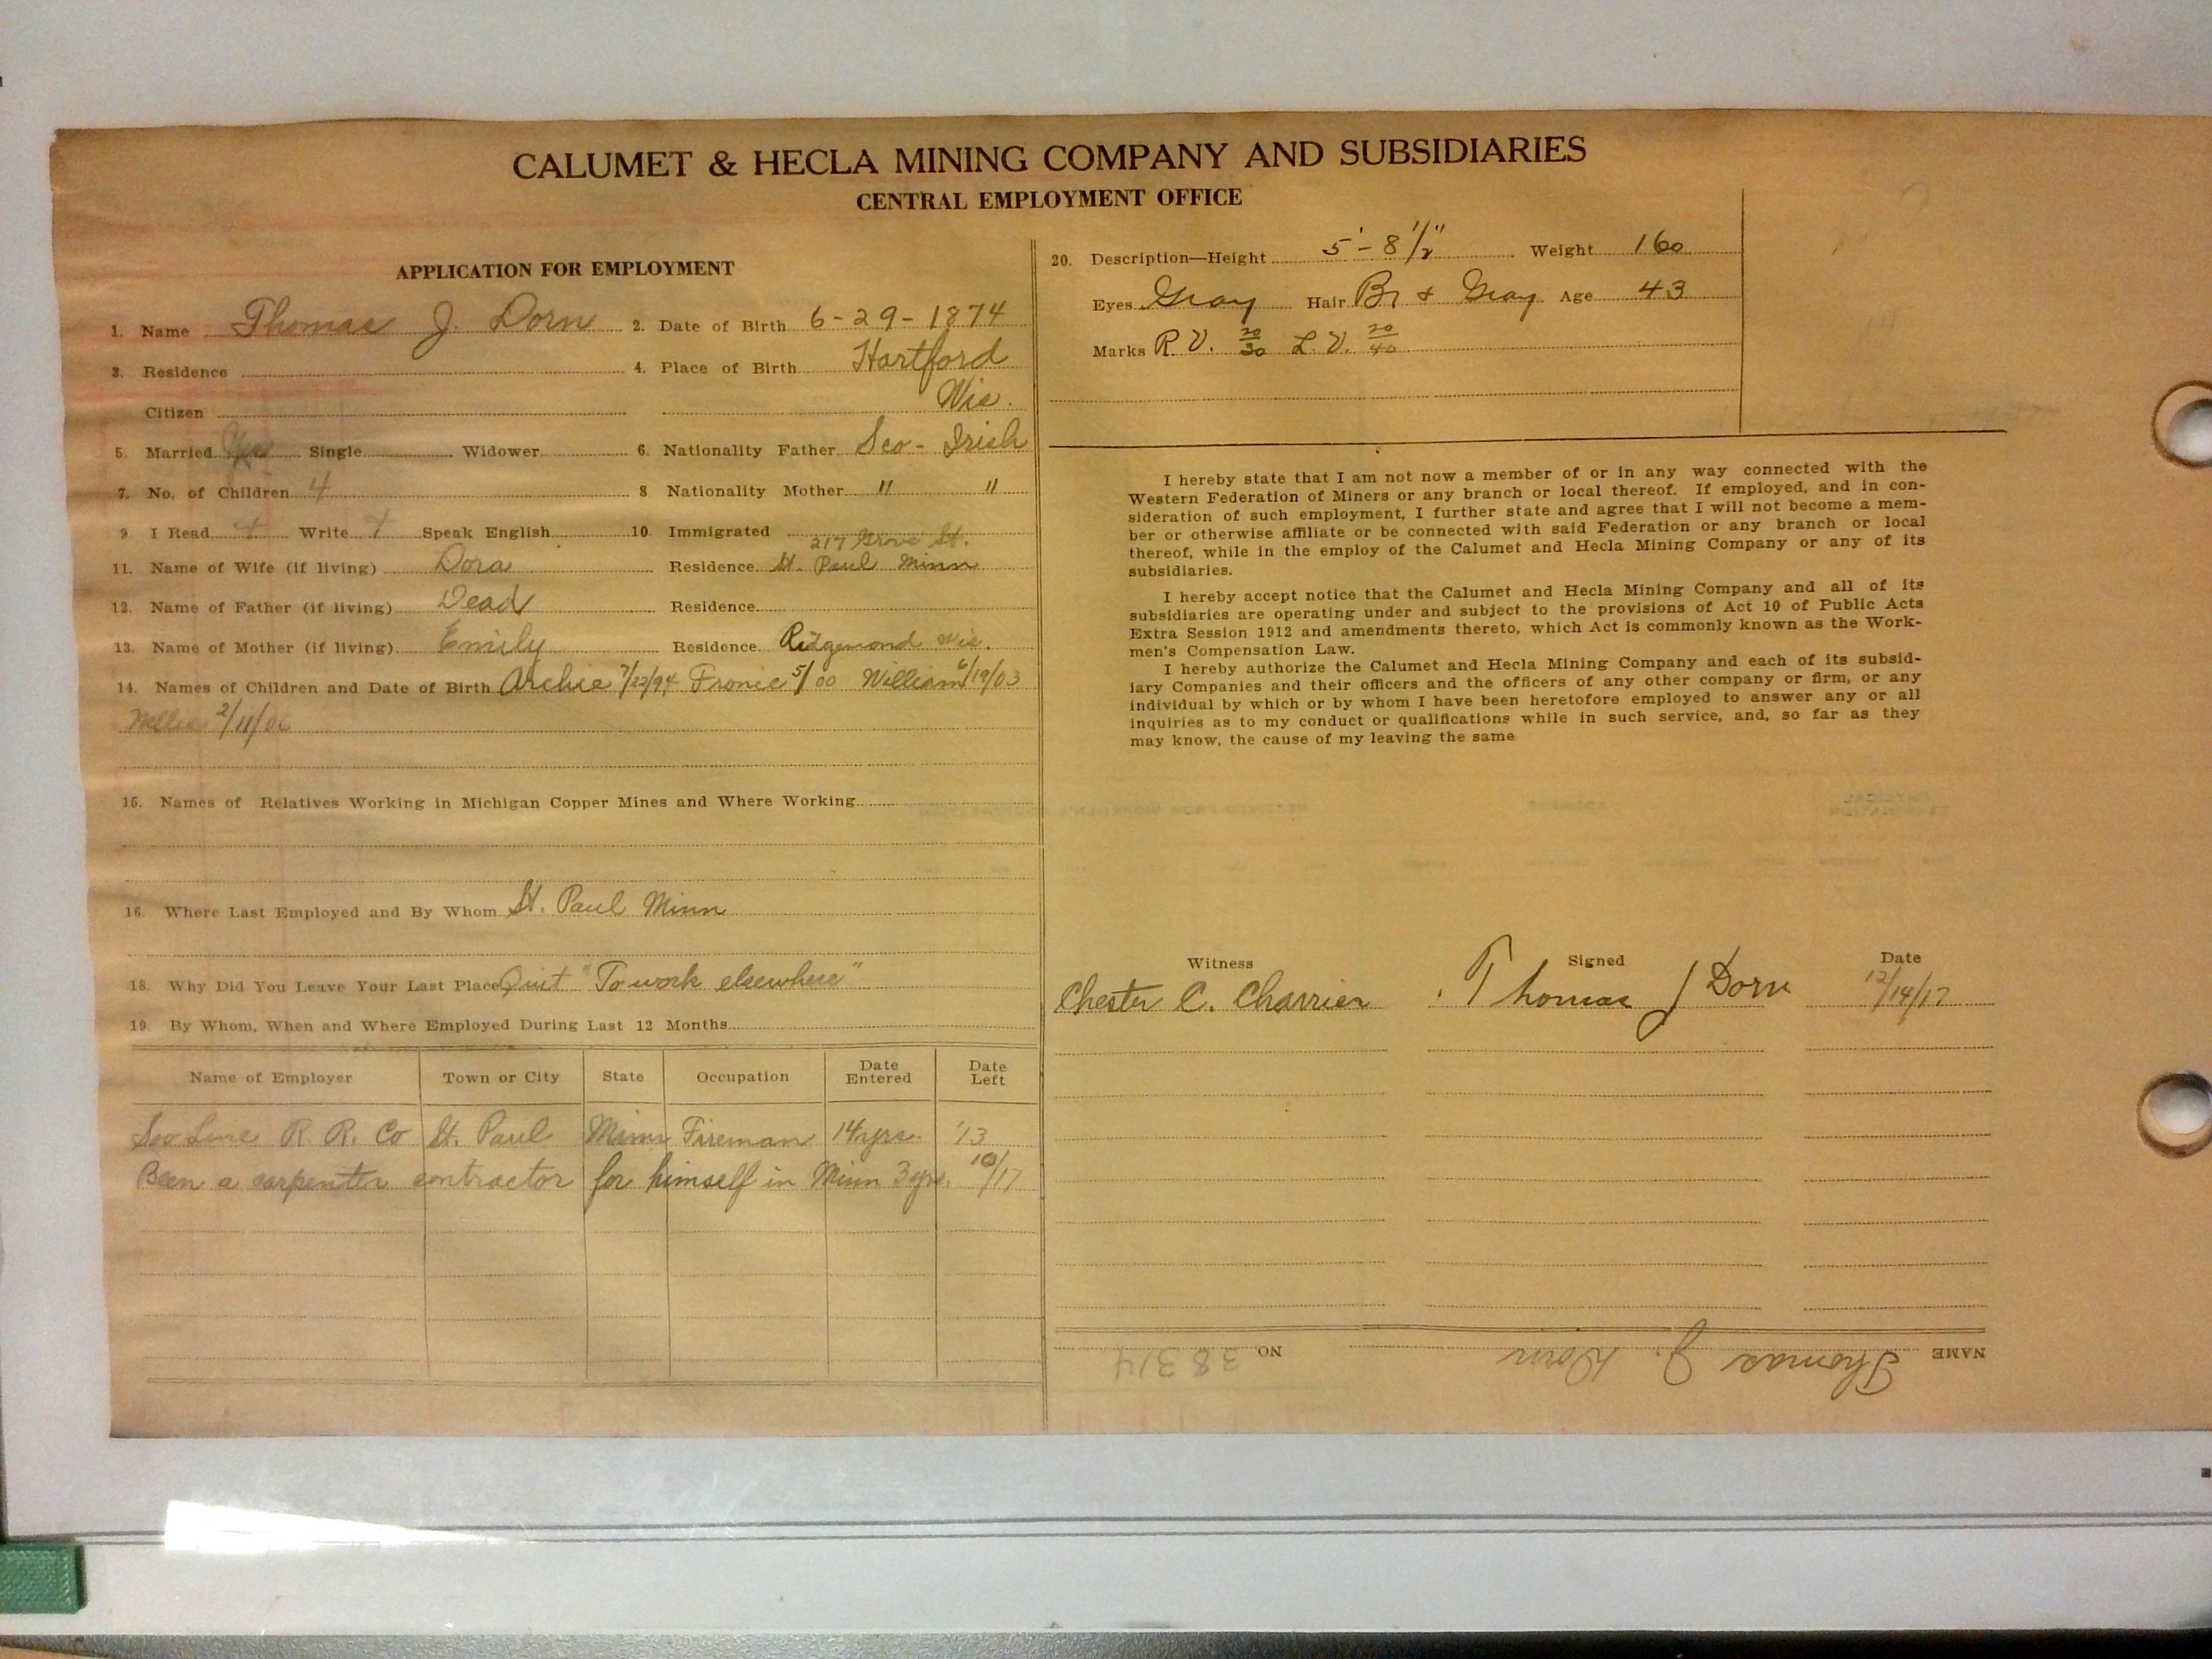 CALUMET & HECLA MINING COMPANY AND SUBSIDIARIES
CENTRAL EMPLOYMENT OFFICE
APPLICATION FOR EMPLOYMENT
1. Name Thomas J. Dorn 2. Date of Birth 6-29-1874
3. Residence 4. Place of Birth Hartford
Citizen Wis.
5. Married Yes Single Widower 6. Nationality Father Sco-Irish
7. No. of Children 4 8 Nationality Mother " "
9 I Read Write Speak English 10. Immigrated
217 Grove St.
11. Name of Wife (if living) Dora Residence St. Paul Minn
12. Name of Father (if living) Dead Residence
13. Name of Mother (if living) Emily Residence Wis.
14. Names of Children and Date of Birth Archie 7/22/94 5/00 William 6/19/03
2/11/
15. Names of Relatives Working in Michigan Copper Mines and Where Working
16. Where Last Employed and By Whom St. Paul Minn
18. Why Did You Leave Your Last Place Quit "To work elsewhere"
19. By Whom, When and Where Employed During Last 12 Months
Name of Employer Town or City State Occupation Date Entered Date Left
Soo Line R. R. Co St. Paul Minn Fireman 14 yrs. '13
Been a carpenter contractor for himself in Minn 3 yrs. 10/17
20. Description—Height 5'-8 1/2" Weight 160
Eyes Gray Hair Br & Gray Age 43
Marks R.V. 20/30 L.V. 20/40
I hereby state that I am not now a member of or in any way connected with the
Western Federation of Miners or any branch or local thereof. If employed, and in con-
sideration of such employment, I further state and agree that I will not become a mem-
ber or otherwise affiliate or be connected with said Federation or any branch or local
thereof, while in the employ of the Calumet and Hecla Mining Company or any of its
subsidiaries.
I hereby accept notice that the Calumet and Hecla Mining Company and all of its
subsidiaries are operating under and subject to the provisions of Act 10 of Public Acts
Extra Session 1912 and amendments thereto, which Act is commonly known as the Work-
men's Compensation Law.
I hereby authorize the Calumet and Hecla Mining Company and each of its subsid-
iary Companies and their officers and the officers of any other company or firm, or any
individual by which or by whom I have been heretofore employed to answer any or all
inquiries as to my conduct or qualifications while in such service, and, so far as they
may know, the cause of my leaving the same
Witness Signed Date
Chester C. Charrier Thomas J Dorn 12/14/17
NAME Thomas J. Dorn NO. 38314